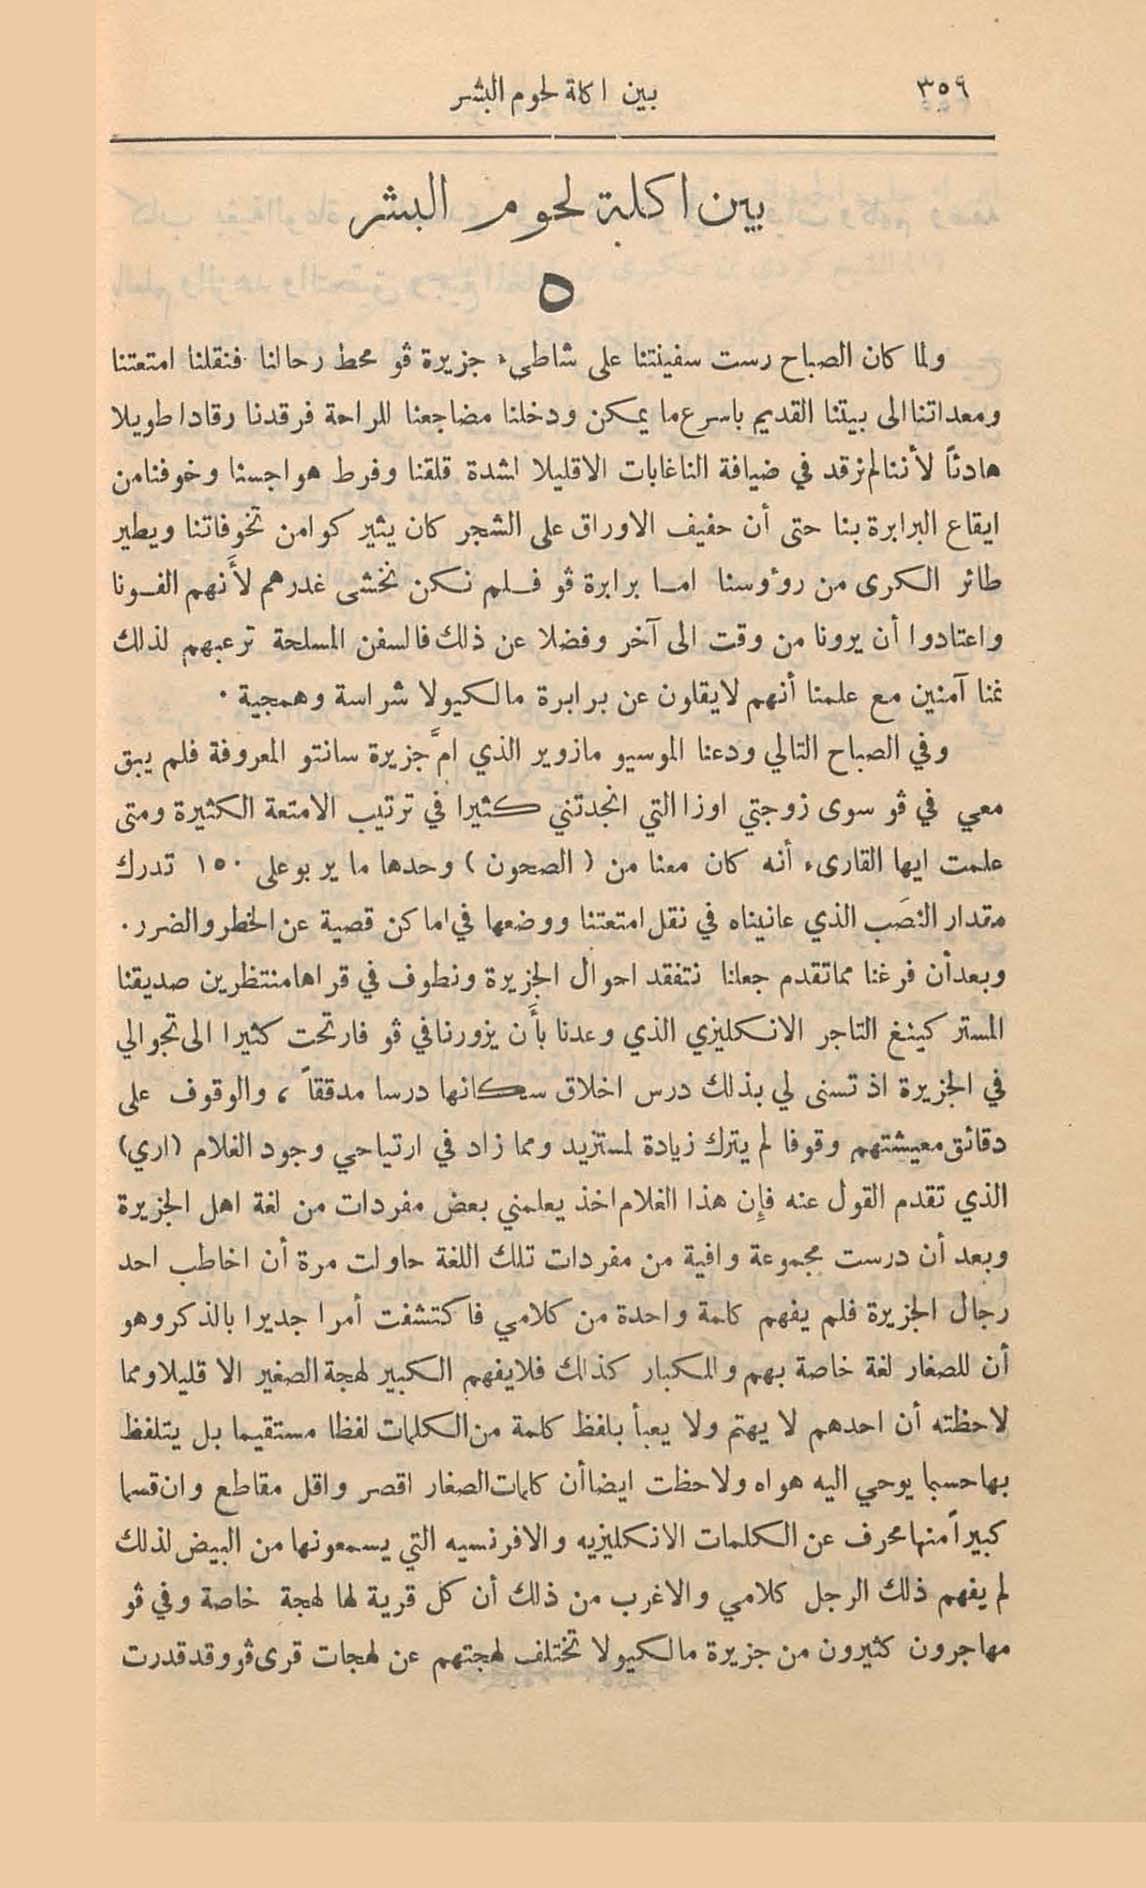 ٣٥٩
بين اكلة لحوم البشر
بين اكلة لحوم البشر
٥
ولما كان الصباح رست سفينتنا على شاطىء جزيرة ڤو محط رحالنا فنقلنا امتعتنا
ومعداتنا الى بيتنا القديم باسرع ما يمكن ودخلنا مضاجعنا للراحة فرقدنا رقادا طويلا
هادئاً لأننا لم نرقد في ضيافة الناغابات الا قليلا لشدة قلقنا وفرط هواجسنا وخوفنا من
ايقاع البرابرة بنا حتى أن حفيف الاوراق على الشجر كان يثير كوامن تخوفاتنا ويطير
طائر الكرى من روؤسنا اما برابرة ڤو فلم نكن نخشى غدرهم لأنهم الفونا
واعتادوا أن يرونا من وقت الى آخر وفضلا عن ذلك فالسفن المسلحة ترعبهم لذلك
نمنا آمنين مع علمنا أنهم لايقلون عن برابرة مالكيولا شراسة وهمجية ٠
وفي الصباح التالي ودعنا الموسيو مازوير الذي امَّ جزيرة سانتو المعروفة فلم يبق
معي في ڤو سوى زوجتي اوزا التي انجدتني كثيرا في ترتيب الامتعة الكثيرة ومتى
علمت ايها القارىء أنه كان معنا من ( الصحون ) وحدها ما يربو على ١٥٠ تدرك
مقدار النصَب الذي عانيناه في نقل امتعتنا ووضعها في اماكن قصية عن الخطر والضرر.
وبعد أن فرغنا مما تقدم جعلنا نتفقد احوال الجزيرة ونطوف في قراها منتظرين صديقنا
المستر كينغ التاجر الانكليزي الذي وعدنا بأَن يزورنا في ڤو فارتحت كثيرا الى تجوالي
في الجزيرة اذ تسنى لي بذلك درس اخلاق سكانها درسا مدققاً ، والوقوف على
دقائق معيشتهم وقوفا لم يترك زيادة لمستزيد ومما زاد في ارتياحي وجود الغلام (اري)
الذي تقدم القول عنه فإن هذا الغلام اخذ يعلمني بعض مفردات من لغة اهل الجزيرة
وبعد أن درست مجموعة وافية من مفردات تلك اللغة حاولت مرة أن اخاطب احد
رجال الجزيرة فلم يفهم كلمة واحدة من كلامي فاكتشفت أمرا جديرا بالذكر وهو
أن للصغار لغة خاصة بهم وللكبار كذلك فلا يفهم الكبير لهجة الصغير الا قليلا ومما
لاحظته أن احدهم لا يهتم ولا يعبأ بلفظ كلمة من الكلمات لفظا مستقيما بل يتلفظ
بها حسبما يوحي اليه هواه ولاحظت ايضا أن كلمات الصغار اقصر واقل مقاطع وان قسما
كبيراً منها محرف عن الكلمات الانكليزيه والافرنسيه التي يسمعونها من البيض لذلك
لم يفهم ذلك الرجل كلامي والاغرب من ذلك أن كل قرية لها لهجة خاصة وفي ڤو
مهاجرون كثيرون من جزيرة مالكيولا تختلف لهجتهم عن لهجات قرى ڤو وقد قدرت